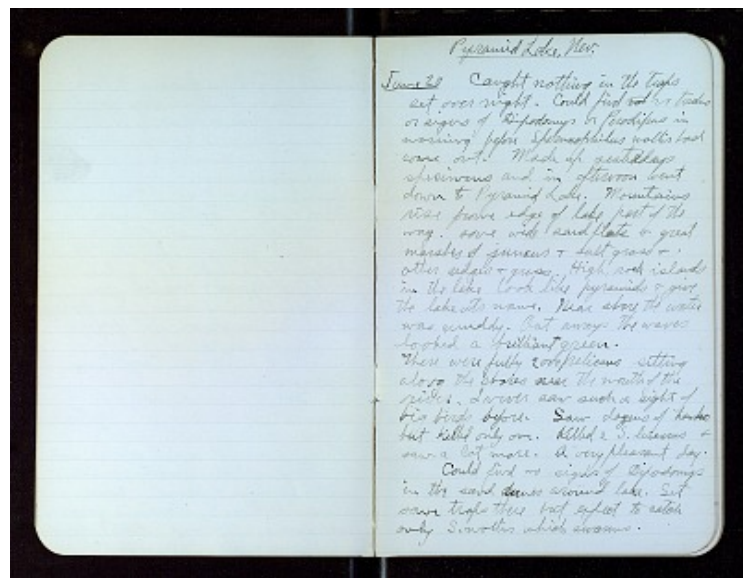 Pyramid Lake, Nev.
June 20 Caught nothing in the traps
set over night. Could find no tracks
or signs of Dipodomys or Perodipus in
morning before Spermophilus mollis had
come out. Made up yesterdays
specimens and in afternoon went
down to Pyramid Lake. Mountains
rise from edge of lake part of the
way. some wide sand flats & great
marshes of juncus & salt grass &
other sedges & grass. High rock islands
in the lake look like pyramids & give
the lake its name. Near shore the water
was muddy. Out aways the waves
looked a brilliant green.
There were fully 2000 pelicans sitting
along the shores near the mouth of the
river. I never saw such a sight of
big birds before. Saw dozens of
but killed only one. Killed 2 S. &
saw a lot more. A very pleasant day.
Could find no signs of Dipodomys
in the sand dunes around lake. Set
some traps there but expect to catch
only S. mollis which swarms.